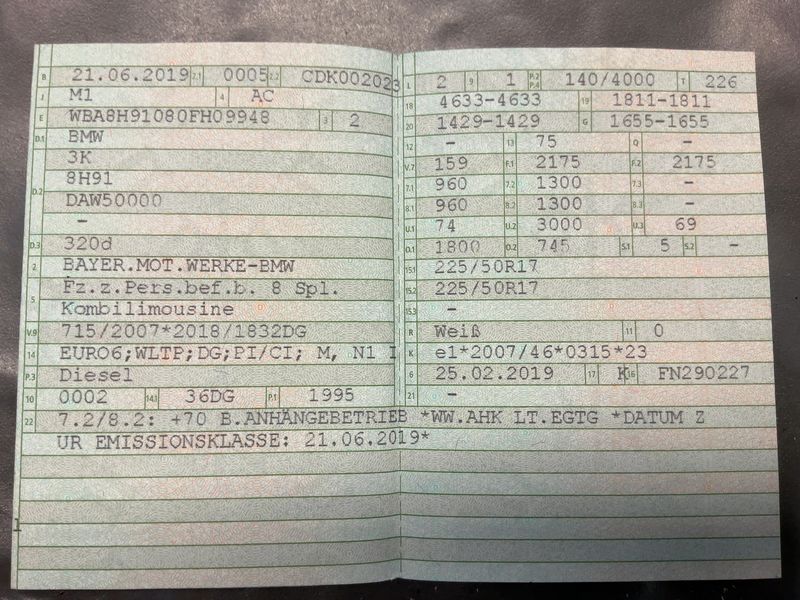 B 21.06.2019 2.1 0005 2.2 CDK002023
J M1 4 AC
E WBA8H91080FH09948 3 2
D.1 BMW
3K
D.2 8H91
DAW50000
-
D.3 320d
2 BAYER.MOT.WERKE-BMW
Fz.z.Pers.bef.b. 8 Spl.
5 Kombilimousine
V.9 715/2007*2018/1832DG
14 EURO6;WLTP;DG;PI/CI; M, N1 I
P.3 Diesel
10 0002 14.1 36DG P.1 1995
L 2 9 1 P.2 P.4 140/4000 T 226
18 4633-4633 19 1811-1811
20 1429-1429 G 1655-1655
12 - 13 75 Q -
V.7 159 F.1 2175 F.2 2175
7.1 960 7.2 1300 7.3 -
8.1 960 8.2 1300 8.3 -
U.1 74 U.2 3000 U.3 69
O.1 1800 O.2 745 S.1 5 S.2 -
15.1 225/50R17
15.2 225/50R17
15.3 -
R Weiß 11 0
K e1*2007/46*0315*23
6 25.02.2019 17 K 16 FN290227
21 -
22 7.2/8.2: +70 B.ANHÄNGEBETRIEB *WW.AHK LT.EGTG *DATUM Z
UR EMISSIONSKLASSE: 21.06.2019*